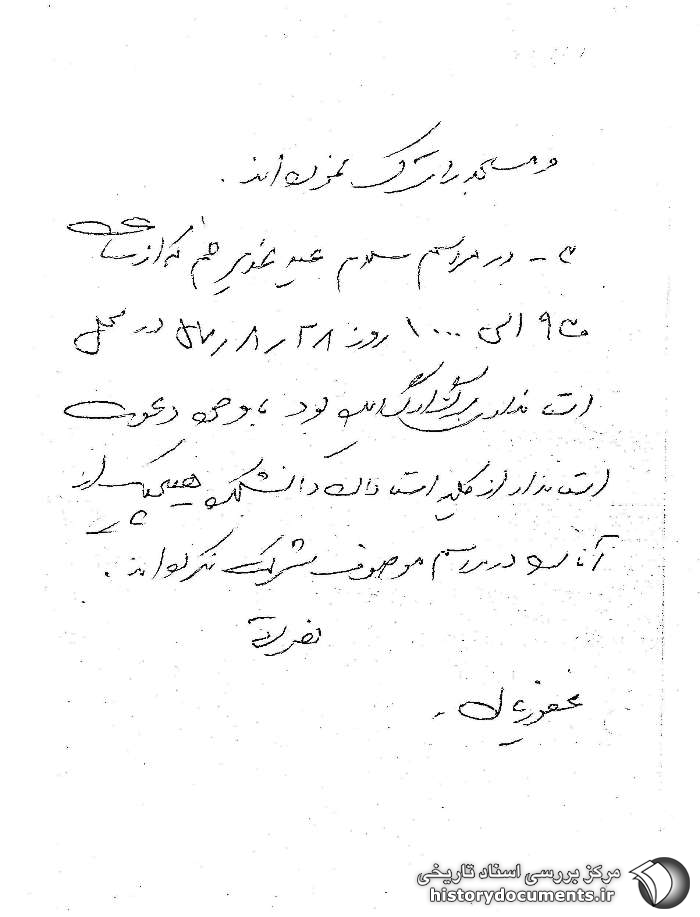 و مسجد را ترک نموده‌اند.
۳- در مراسم سلام عید غدیر خم که از ساعت
۹۳۰ الی ۱۰۰۰ روز ۲۸/۸/ در محل
استانداری برگزار گردیده بود با وجود دعوت
استاندار از کلیه استادان دانشگاه هیچیک از
آنان در مراسم موصوف شرکت نکرده‌اند.
نظریه
مرکز بررسی اسناد تاریخی
historydocuments.ir